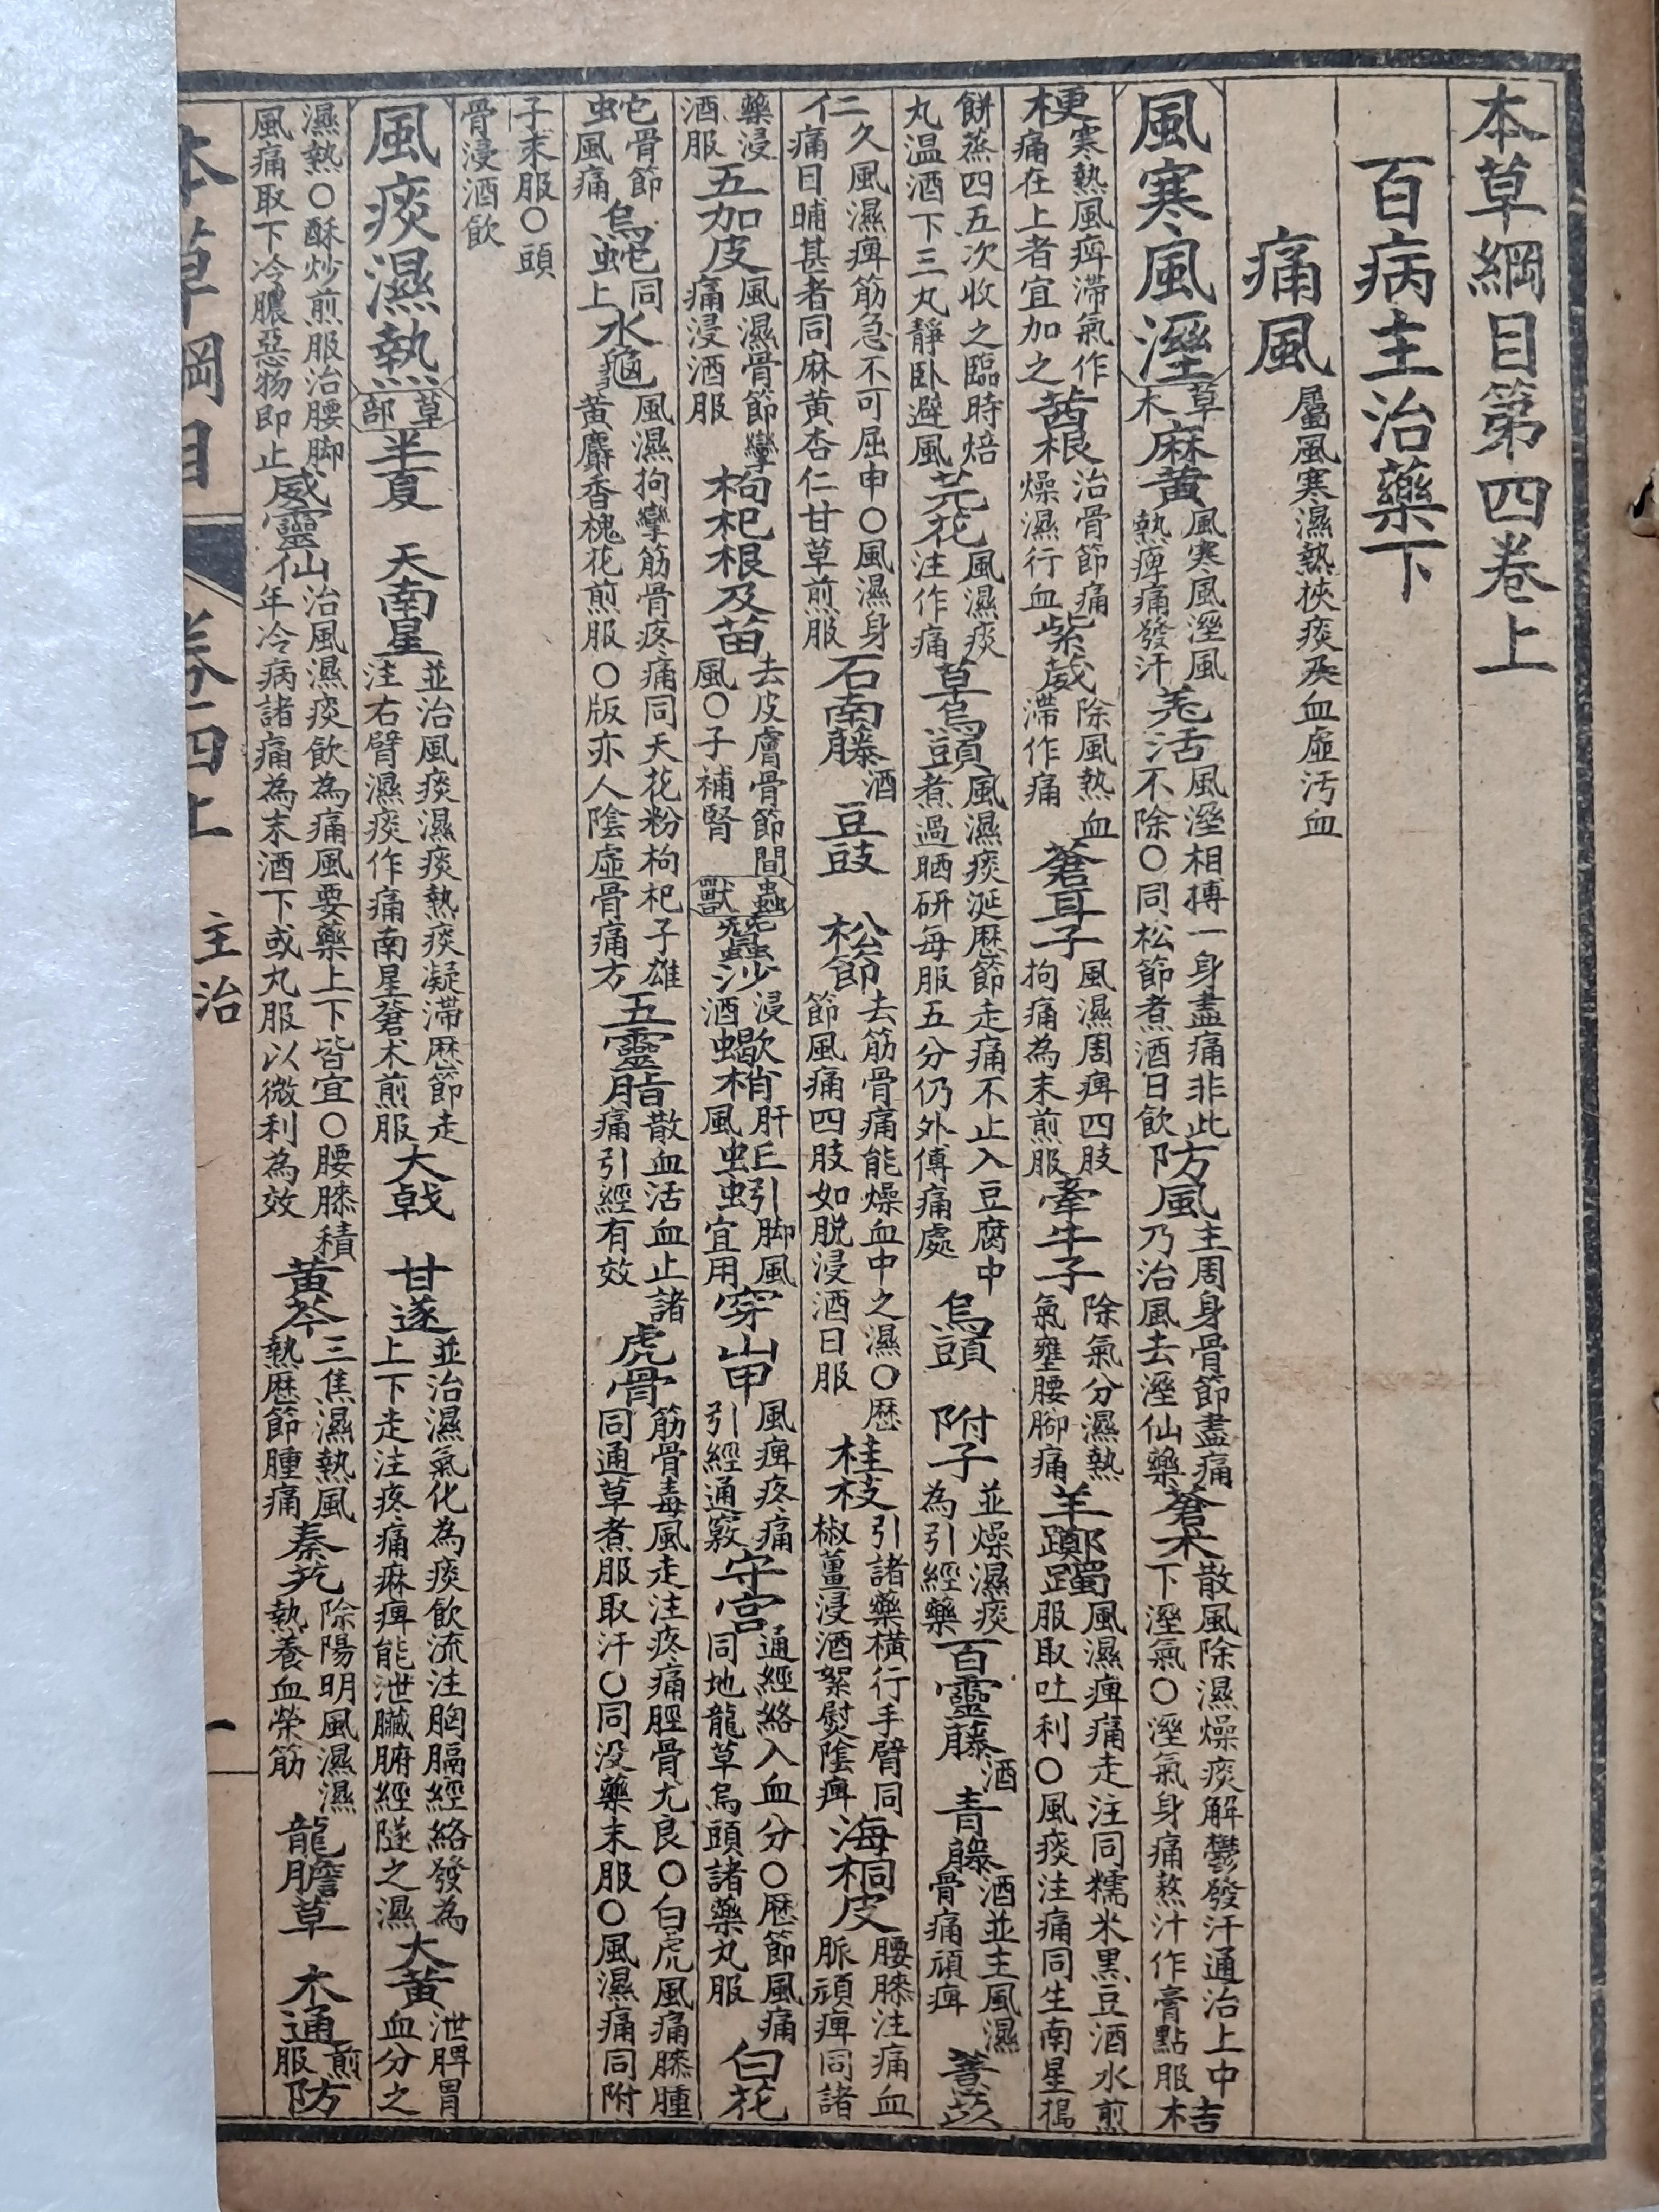 本草綱目第四卷上
百病主治藥下
痛風屬風寒濕熱挾痰及血虛汚血
風寒風溼草木麻黃風寒風溼風熱痺痛發汗羌活風溼相搏一身盡痛非此不除○同松節煮酒日飲防風主周身骨節盡痛乃治風去溼仙藥蒼朮散風除濕燥痰解鬱發汗通治上中下溼氣○溼氣身痛熬汁作膏點服桔
梗寒熱風痺滯氣作痛在上者宜加之茜根治骨節痛燥濕行血紫葳除風熱血滯作痛蒼耳子風濕周痺四肢拘痛為末煎服牽牛子除氣分濕熱氣壅腰腳痛羊躑躅風濕痺痛走注同糯米黑豆酒水煎服取吐利○風痰注痛同生南星搗
餅蒸四五次收之臨時焙丸温酒下三丸靜卧避風芫花風濕痰注作痛草烏頭風濕痰涎歷節走痛不止入豆腐中煮過晒研每服五分仍外傅痛處烏頭附子並燥濕痰為引經藥百靈藤酒青藤酒並主風濕骨痛頑痺薏苡
仁久風濕痺筋急不可屈申○風濕身痛日晡甚者同麻黄杏仁甘草煎服石南藤酒豆豉松節去筋骨痛能燥血中之濕○歷節風痛四肢如脱浸酒日服桂枝引諸藥橫行手臂同椒薑浸酒絮熨陰痺海桐皮腰膝注痛血脈頑痺同諸
藥浸酒服五加皮風濕骨節攣痛浸酒服枸杞根及苗去皮膚骨節間風○子補腎蟲獸蠶沙浸酒蠍梢肝風蚯蚓腳風宜用穿山甲風痺疼痛引經通竅守宮通經絡入血分○歷節風痛同地龍草烏頭諸藥丸服白花
蛇骨節風痛烏蛇同上水龜風濕拘攣筋骨疼痛同天花粉枸杞子雄黃麝香槐花煎服○版亦入陰虛骨痛方五靈脂散血活血止諸痛引經有效虎骨筋骨毒風走注疼痛脛骨尤良○白虎風痛膝腫同通草煮服取汗○同没藥末服○風濕痛同附
子末服○頭骨浸酒飲
風痰濕熱草部半夏天南星並治風痰濕痰熱痰凝滯歷節走注右臂濕痰作痛南星蒼朮煎服大戟甘遂並治濕氣化為痰飲流注胸膈經絡發為上下走注疼痛麻痺能泄臟腑經隧之濕大黃泄脾胃血分之
濕熱○酥炒煎服治腰腳風痛取下冷膿惡物即止威靈仙治風濕痰飲為痛風要藥上下皆宜○腰膝積年冷病諸痛為末酒下或丸服以微利為效黃芩三焦濕熱風熱歷節腫痛秦艽除陽明風濕濕熱養血榮筋龍膽草木通煎服防
本草綱目卷四上主治一